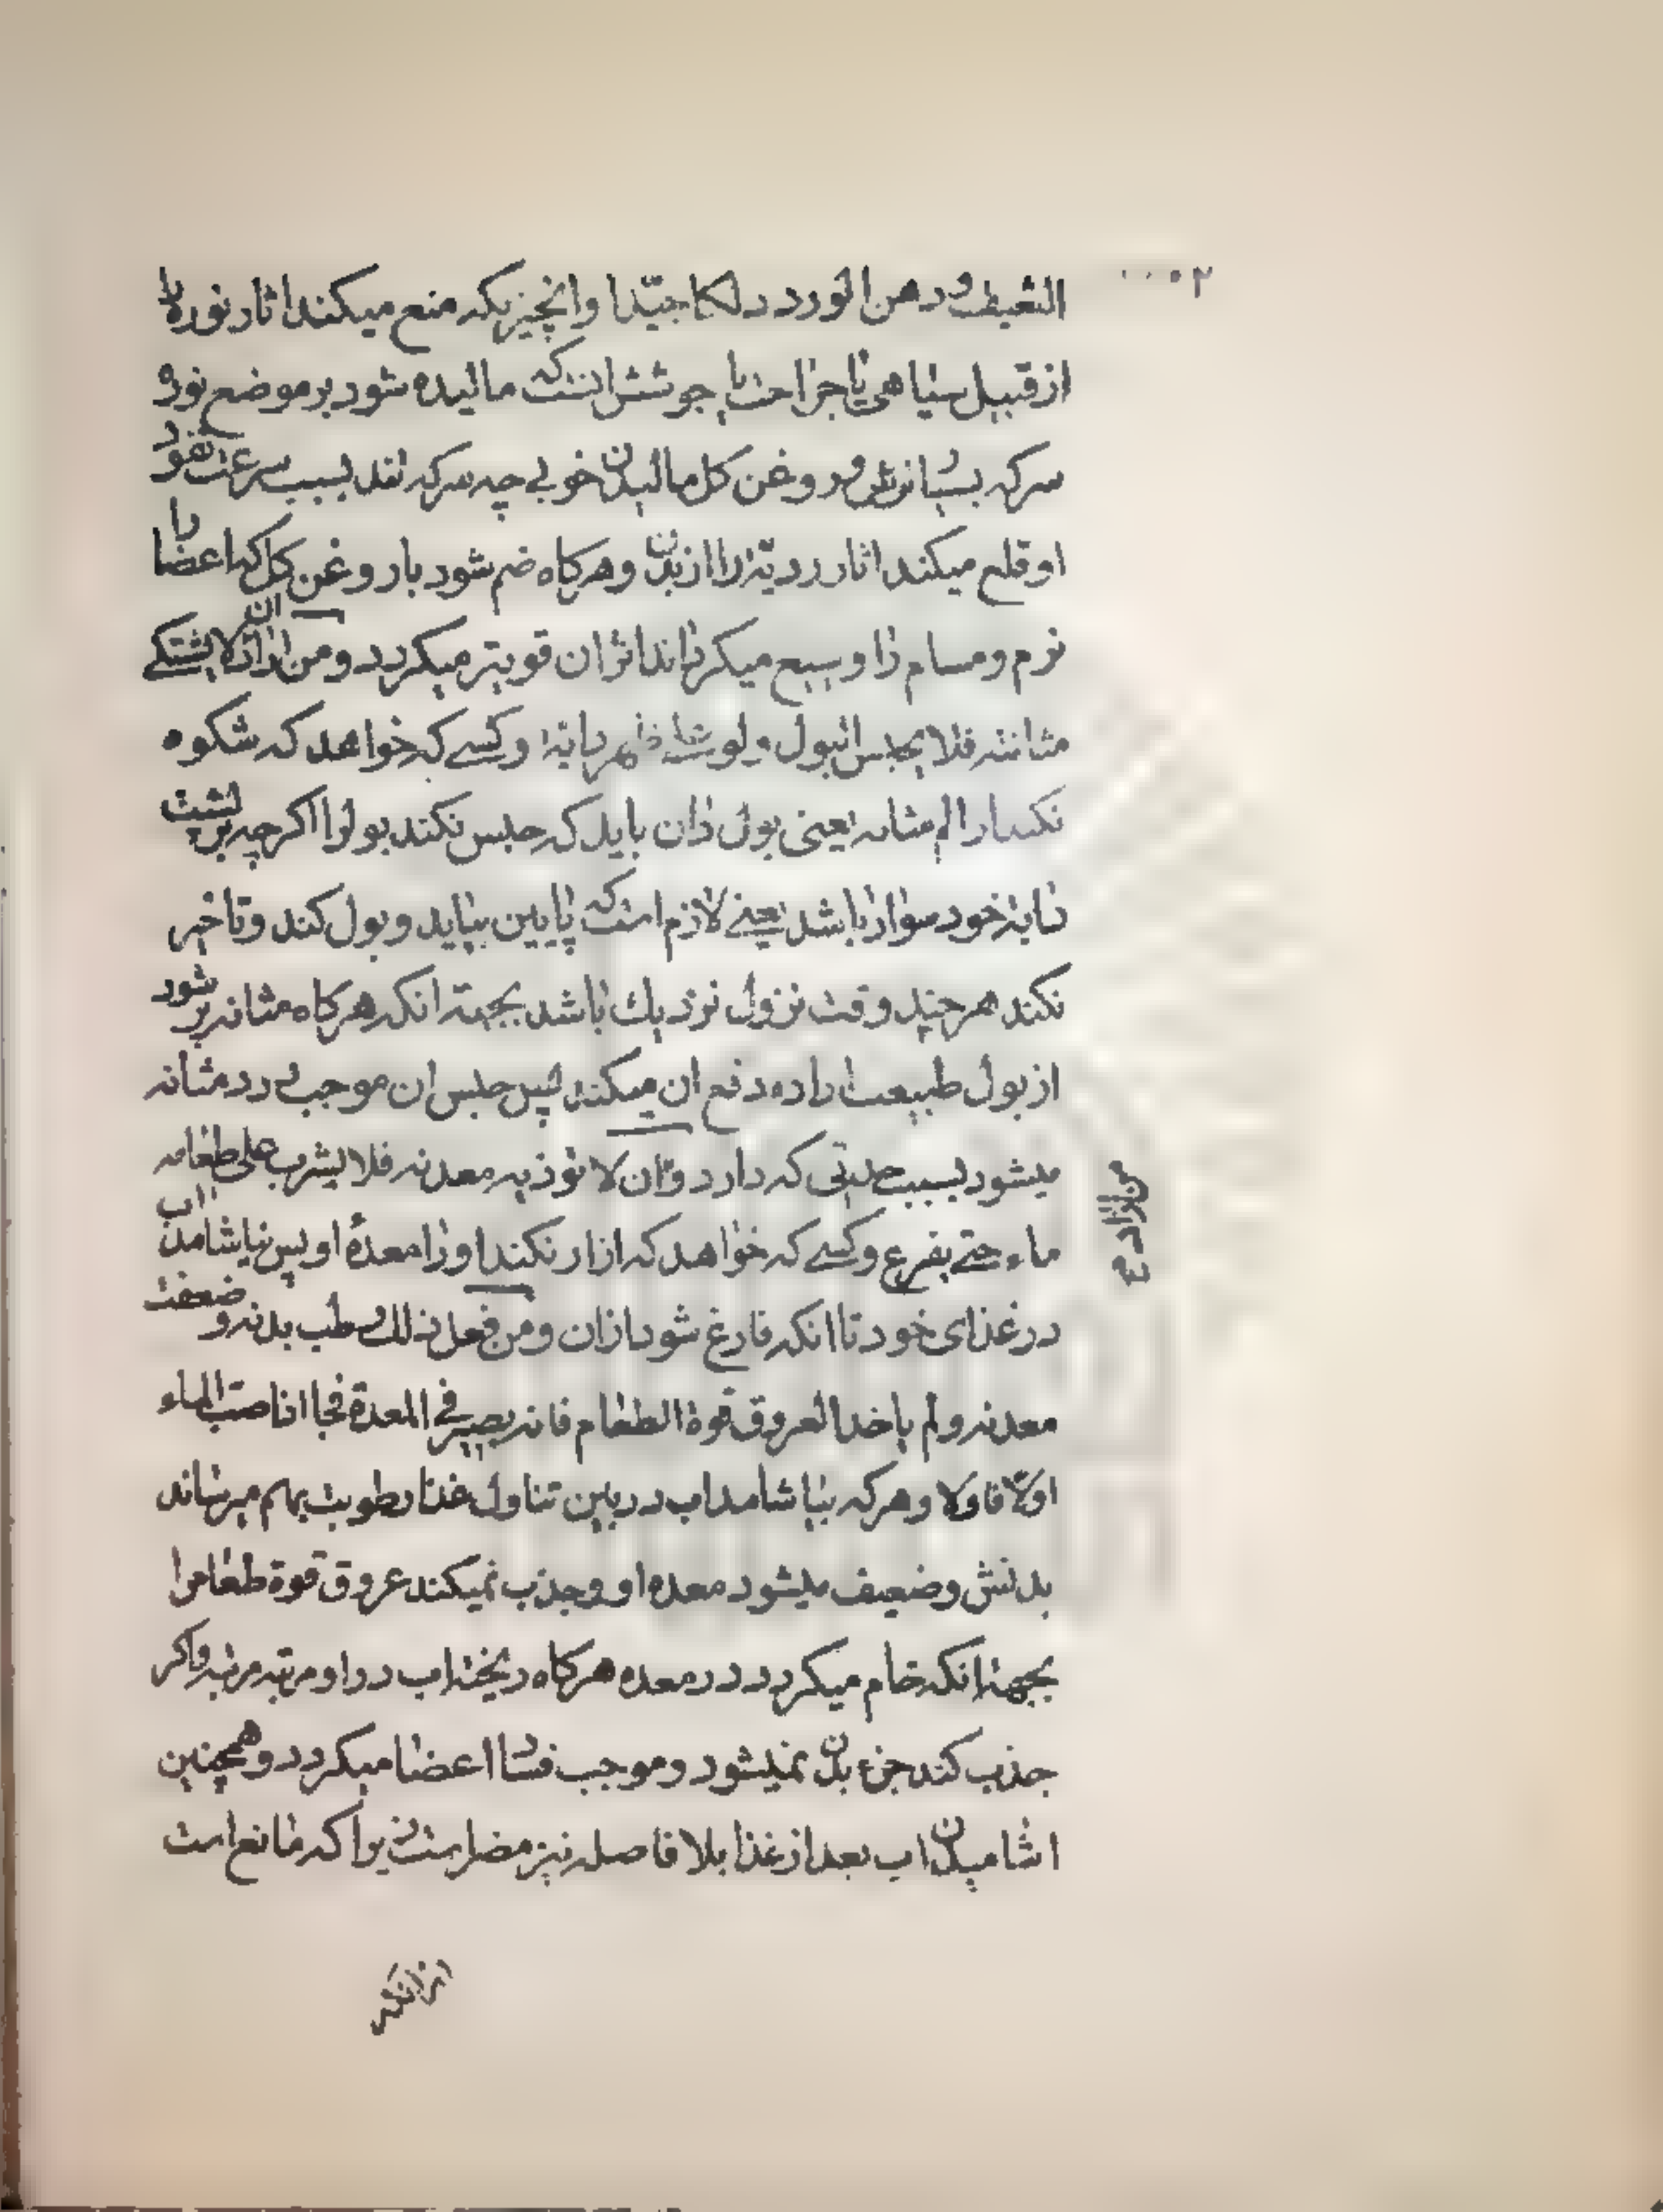 الثقیف و دهن الورد دلکا جیّدا وانچیزیکه منع میکند اثار نوره را
از قبیل سیاهی یا جراحت یا جوشش انست که مالیده شود بر موضع نوره
سرکه بسیار ترش و روغن کل مالیدن خوبی چه سرکه تند بسبب سرعت نفوذ
او قلع میکند اثار ردیّه را از بدن و هرکاه ضم شود با روغن کل که اعضا را
نرم و مسام را وسیع میکرداند اثر ان قویتر میکردد و من اراد ان لا یشتکی
مثانته فلا یحبس البول ولو علی ظهر دابته و کسیکه خواهد که شکوه
نکند از الم مثانه یعنی بول دان باید که حبس نکند بول را اکرچه بر پشت
دابه خود سوار باشد یعنی لازم است که پایین بیاید و بول کند و تاخیر
نکند هرچند وقت نزول نزدیك باشد بجهة انکه هرکاه مثانه پر شود
از بول طبیعت اراده دفع ان میکند پس حبس ان موجب درد مثانه
میشود بسبب حدتی که دارد و ان لا توذیه معدته فلا یشرب علی طعامه
ماء حتی یفرغ و کسی که خواهد که ازار نکند او را معدۀ او پس نیاشامد اب
در غذای خود تا انکه فارغ شود ازان و من فعل ذلك رطب بدنه و ضعفت
معدته ولم یاخذ العروق قوة الطعام فانه یصیر فی المعدة فجا اذا صب الماء
اولا فاولا و هرکه بیاشامد اب در بین تناول غذا رطوبت بهم میرساند
بدنش و ضعیف میشود معده او و جذب نمیکند عروق قوة طعام را
بجهة انکه خام میکردد در معده هرکاه ریخته اب در او مرتبه مرتبه و اکر
جذب کند جزء بدن نمیشود و موجب فساد اعضا میکردد و همچنین
اشامیدن اب بعد از غذا بلا فاصله نیز مضر است زیرا که مانع است
از انکه
من اراد